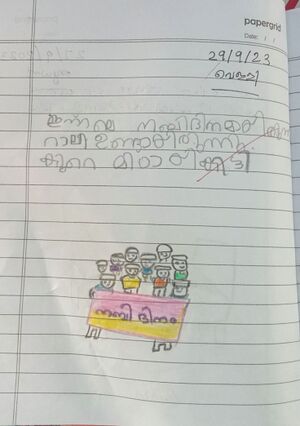 papergrid
Date: / /
29/9/23
വെള്ളി
ഇന്നലെ നബിദിനമായി
റാലി ഉണ്ടായിരുന്നു.
കുറെ മിഠായി കിട്ടി
നബി ദിനം